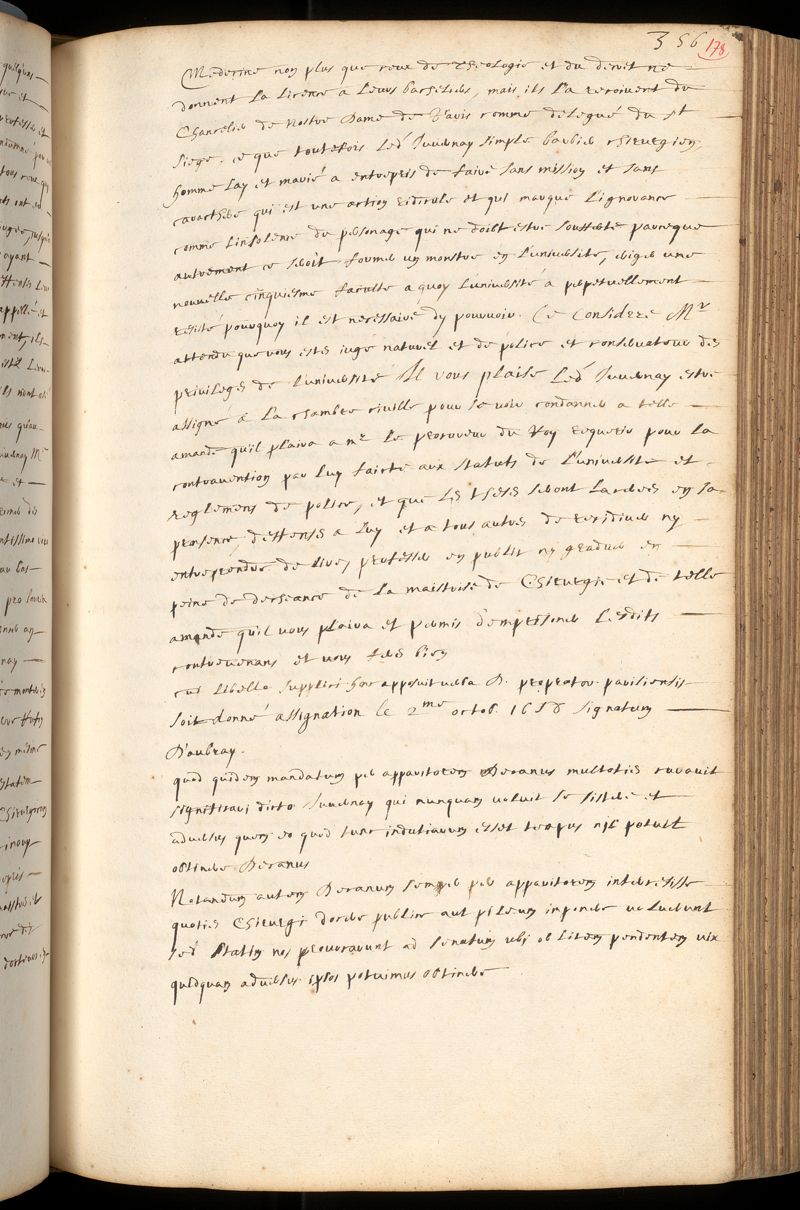 356 178
Medecine non plus que ceux de Theologie et du droit ne
donnent La licence a Leurs bacheliers, mais ils La recoivent du
Chancelier de Nostre Dame de Paris comme delegué du St
Siege. ce que toutefois Led Juvernay simple barbier chirurgien
homme Lay et marié a entrepris de faire sans mission et sans
caracthere qui est une action ridicule et qui marque L'ignorance
comme L'insolence du personage qui ne doibt estre soufferte parceque
autrement ce seroit former un monstre en L'université, eriger une
nouvelle cinquiesme faculté a quoy L'université a perpetuellement
resisté pourquoy il est necessaire d'y pourvoir. Ce Consideré Mr
attendu que vous estes juge naturel et de police et conservateur des
privileges de L'université Il vous plaise Led Juvernay estre
assigné a La chambre civille pour se voir condamner a telle
amande qu'il plaira a mr Le procureur du Roy requerir pour La
contravention par Luy faicte aux statuts de L'université et
reglemens de police, et que Les theses seront Lacerées en sa
presence, deffenses a Luy et a tous autres de recidiver ny
entreprendre de lire, professer en public ny graduer en
peine de descheance de La maistrise de Chirurgie et de telle
amande qu'il vous plaira et permis d'emprisoner Lesdits
contrevenans et vous feres bien
cui libello supplici hoc apposuit verba D. propraetor parisiensis
soit donné assignation le 2me octob. 1656 signatum
D'aubray.
quod quidem mandatum per apparitorem Decanus multoties curavit
significari dicto Juvernay qui nunquam voluit se sistere et
adversus quem eo quod tunc induciarum esset tempus nil potuit
obtinere Decanus
Notandum autem Decanum semper per apparitorem intercessisse
quoties Chirurgi docere publice aut pileum imponere voluerunt
sed statim nos provocarunt ad senatum ubi ob litem pendentem vix
quidquam adversus ipsos potuimus obtinere